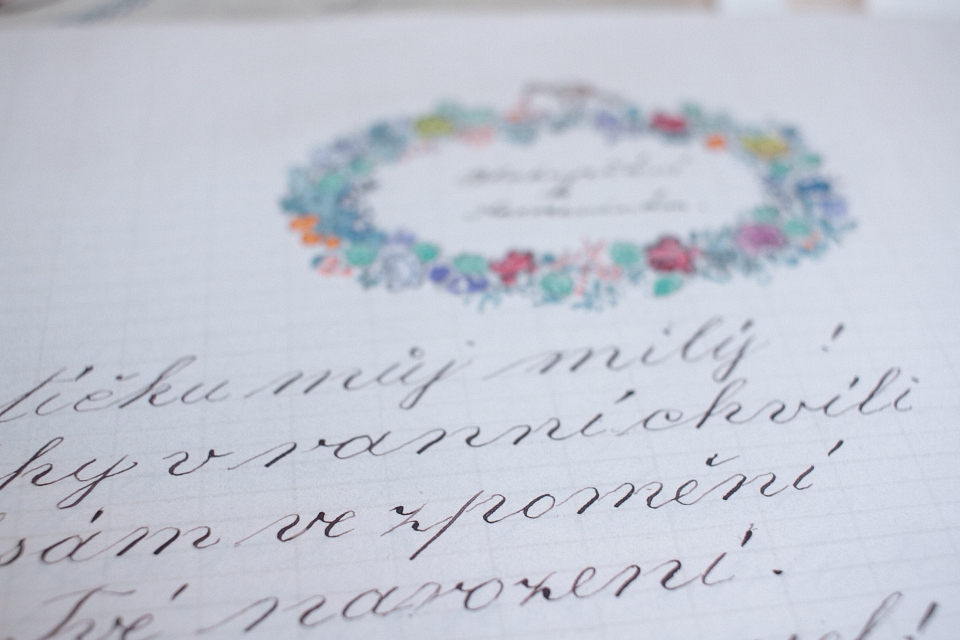 tíčku můj milý!
hy v ranní chvíli
sám ve zpomění
Tvé narození.